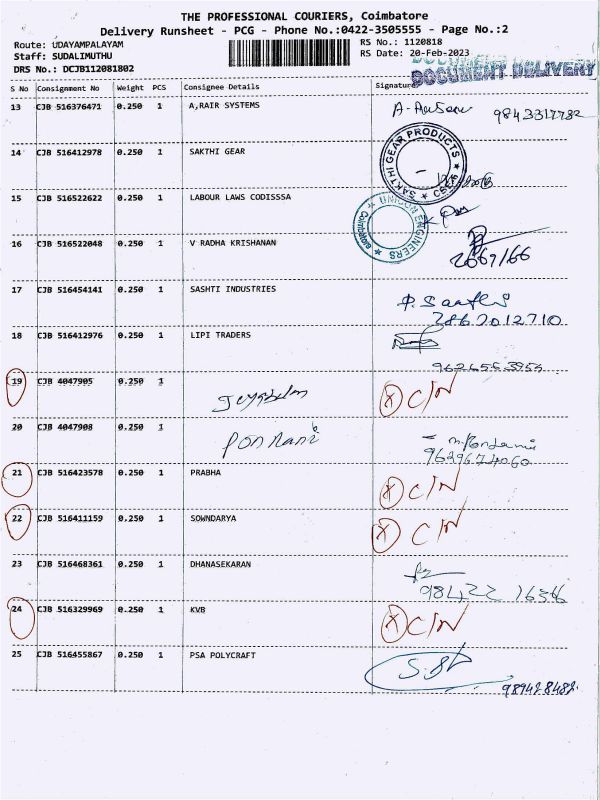 THE PROFESSIONAL COURIERS, Coimbatore
Delivery Runsheet - PCG - Phone No.:0422-3505555 - Page No.:2
Route: UDAYAMPALAYAM RS No.: 1120818
Staff: SUDALIMUTHU RS Date: 20-Feb-2023
DRS No.: DCJB112081802 DOCUMENT DELIVERY
S No Consignment No Weight PCS Consignee Details Signature
13 CJB 516376471 0.250 1 A,RAIR SYSTEMS 9843317782
14 CJB 516412978 0.250 1 SAKTHI GEAR
SAKTHI GEAR PRODUCTS
15 CJB 516522622 0.250 1 LABOUR LAWS CODISSSA
ENGINEERS
16 CJB 516522048 0.250 1 V RADHA KRISHANAN
2667/66
17 CJB 516454141 0.250 1 SASHTI INDUSTRIES
18 CJB 516412976 0.250 1 LIPI TRADERS
19 CJB 4047905 0.250 1 X C/N
20 CJB 4047908 0.250 1
9629674060
21 CJB 516423578 0.250 1 PRABHA X C/N
22 CJB 516411159 0.250 1 SOWNDARYA X C/N
23 CJB 516468361 0.250 1 DHANASEKARAN
24 CJB 516329969 0.250 1 KVB X C/N
25 CJB 516455867 0.250 1 PSA POLYCRAFT